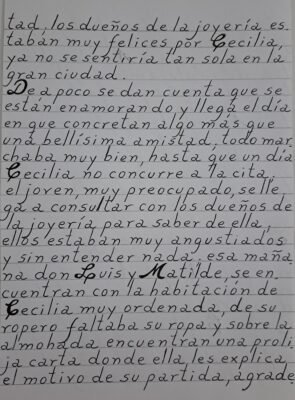 tad, los dueños de la joyería es
taban muy felices por Cecilia,
ya no se sentiría tan sola en la
gran ciudad.
De a poco se dan cuenta que se
están enamorando y llega el día
en que concretan algo más que
una bellísima amistad, todo mar
chaba muy bien, hasta que un día
Cecilia no concurre a la cita,
el joven, muy preocupado, se lle
ga a consultar con los dueños de
la joyería para saber de ella,
ellos estaban muy angustiados
y sin entender nada, esa maña
na don Luis y Matilde, se en
cuentran con la habitación de
Cecilia muy ordenada, de su
ropero faltaba su ropa y sobre la
almohada encuentran una proli
ja carta donde ella, les explica
el motivo de su partida, agrade